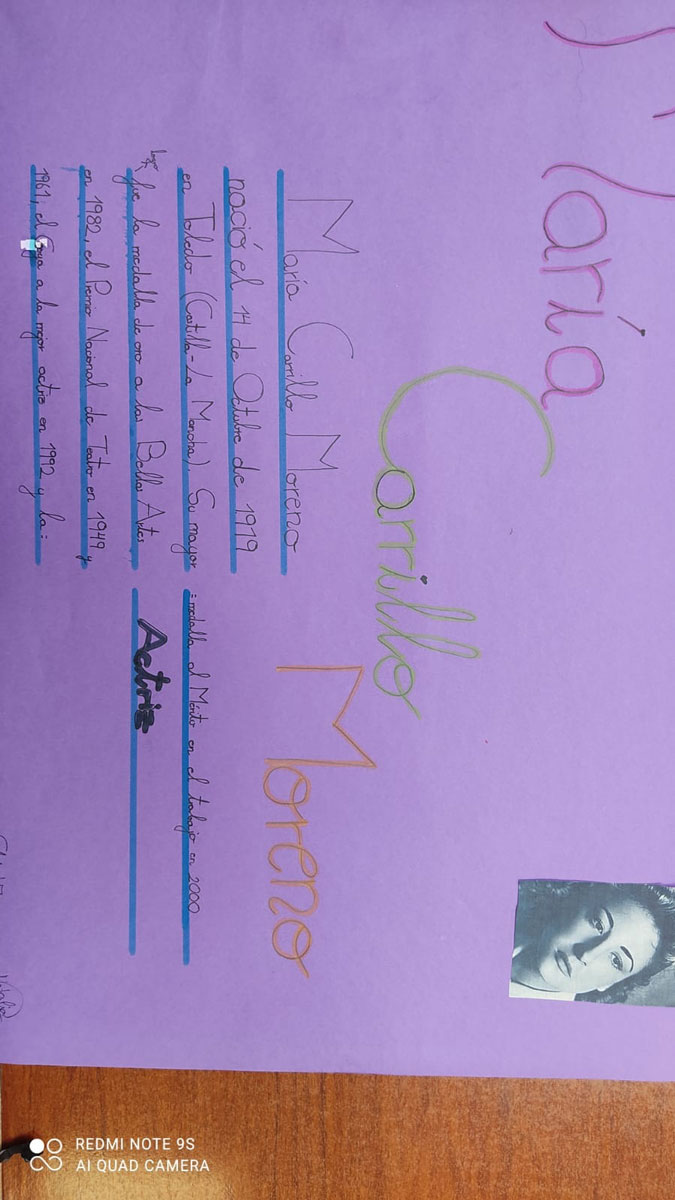 María
Carrillo
Moreno
María Carrillo Moreno
nació el 14 de Octubre de 1919
en Toledo (Castilla-La Mancha). Su mayor
logro fue la medalla de oro a las Bellas Artes
en 1982, el Premio Nacional de Teatro en 1949 y
1961, el Goya a la mejor actriz en 1992 y la:
: medalla al Mérito en el trabajo en 2000
Actriz
REDMI NOTE 9S
AI QUAD CAMERA